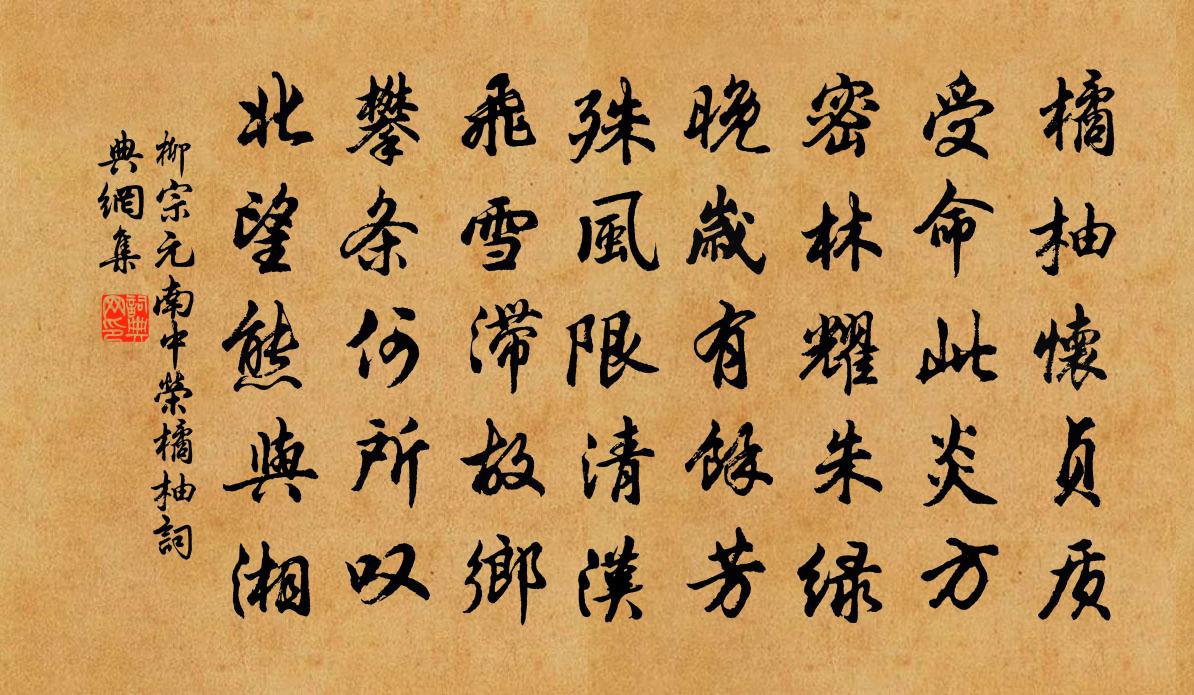 橘柚懷貞质
受命此炎方
密林耀朱绿
晚歲有餘芳
殊風限清漢
飛雪滯故鄉
攀条何所叹
北望熊與湘
柳宗元南中榮橘柚詞
典網集
詞典网印